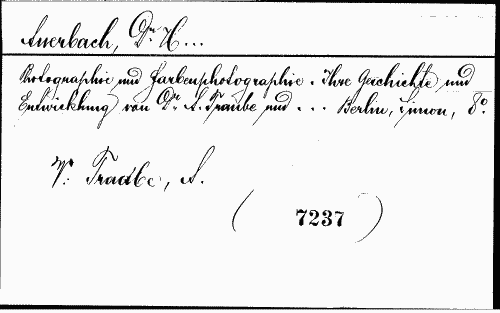 Auerbach, Dr. H...
Photographie und Farbenphotographie. Ihre Geschichte und
Entwicklung von Dr. A. Traube und ... Berlin, Simon, 8°.
V: Traube, A.
(7237)